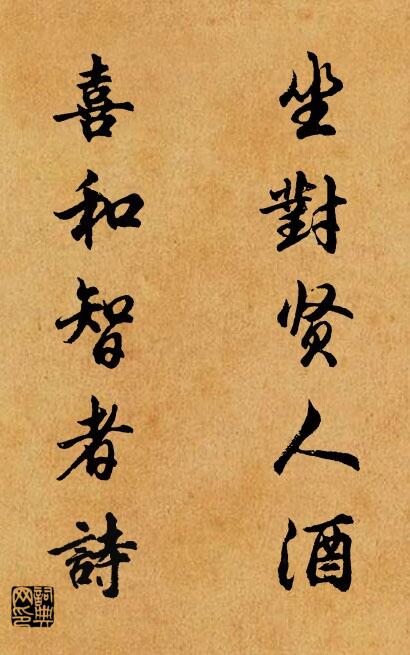 坐對贤人酒
喜和智者詩
詞典网印